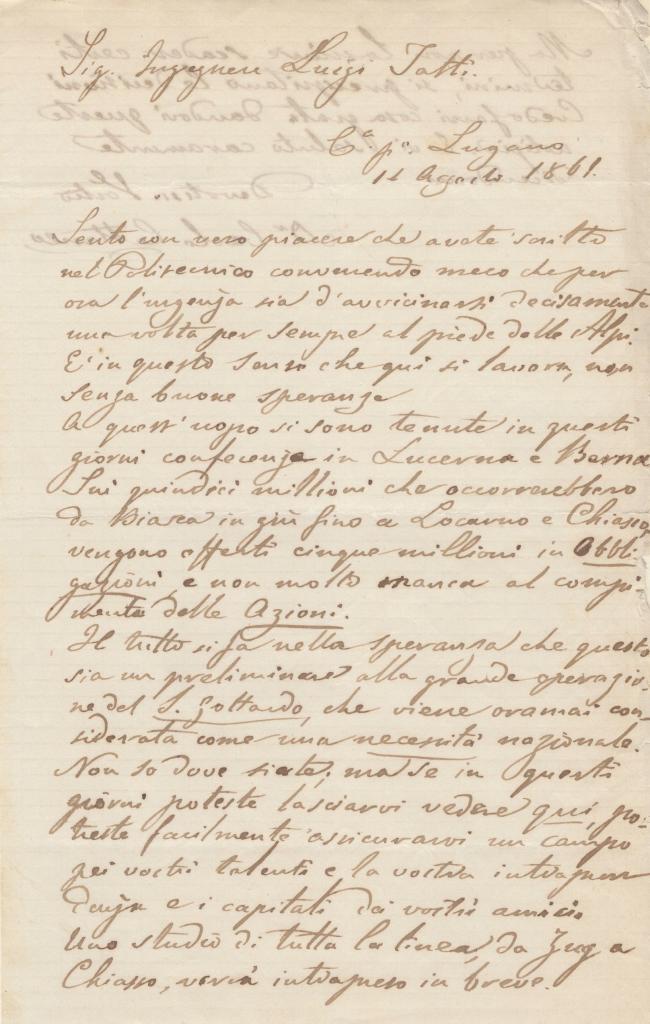 Sig. Ingegnere Luigi Tatti.
Lugano
Agosto 1861.
Sento con vero piacere che avete scritto
nel Politecnico convenendo meco che per
ora l'urgenza sia d'avvicinarsi decisamente
una volta per sempre al piede delle Alpi.
E' in questo senso che qui si lavora, non
senza buone speranze
A quest'uopo si sono tenute in questi
giorni conferenze in Lucerna e Berna
Sui quindici millioni che occorrerebbero
da Biasca in giù fino a Locarno e Chiasso,
vengono offerti cinque millioni in Obbli-
gazioni, e non molto manca al compi
mento delle Azioni.
Il tutto si fa nella speranza che questo
sia un preliminare alla grande operazio-
ne del S. Gottardo, che viene oramai con-
siderata come una necessità nazionale.
Non so dove siate; ma se in questi
giorni poteste lasciarvi vedere qui, po-
treste facilmente assicurarvi un campo
pei vostri talenti e la vostra intrapren
denza e i capitali dei vostri amici.
Uno studio di tutta la linea, da Zug a
Chiasso, verrà intrapreso in breve.